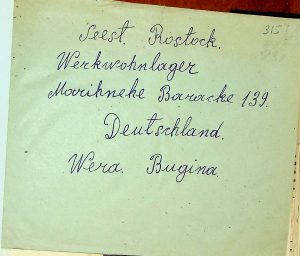 Seest. Rostock.
315
Werkwohnlager
Marihneke Baracke 139.
Deutschland.
Wera. Bugina.